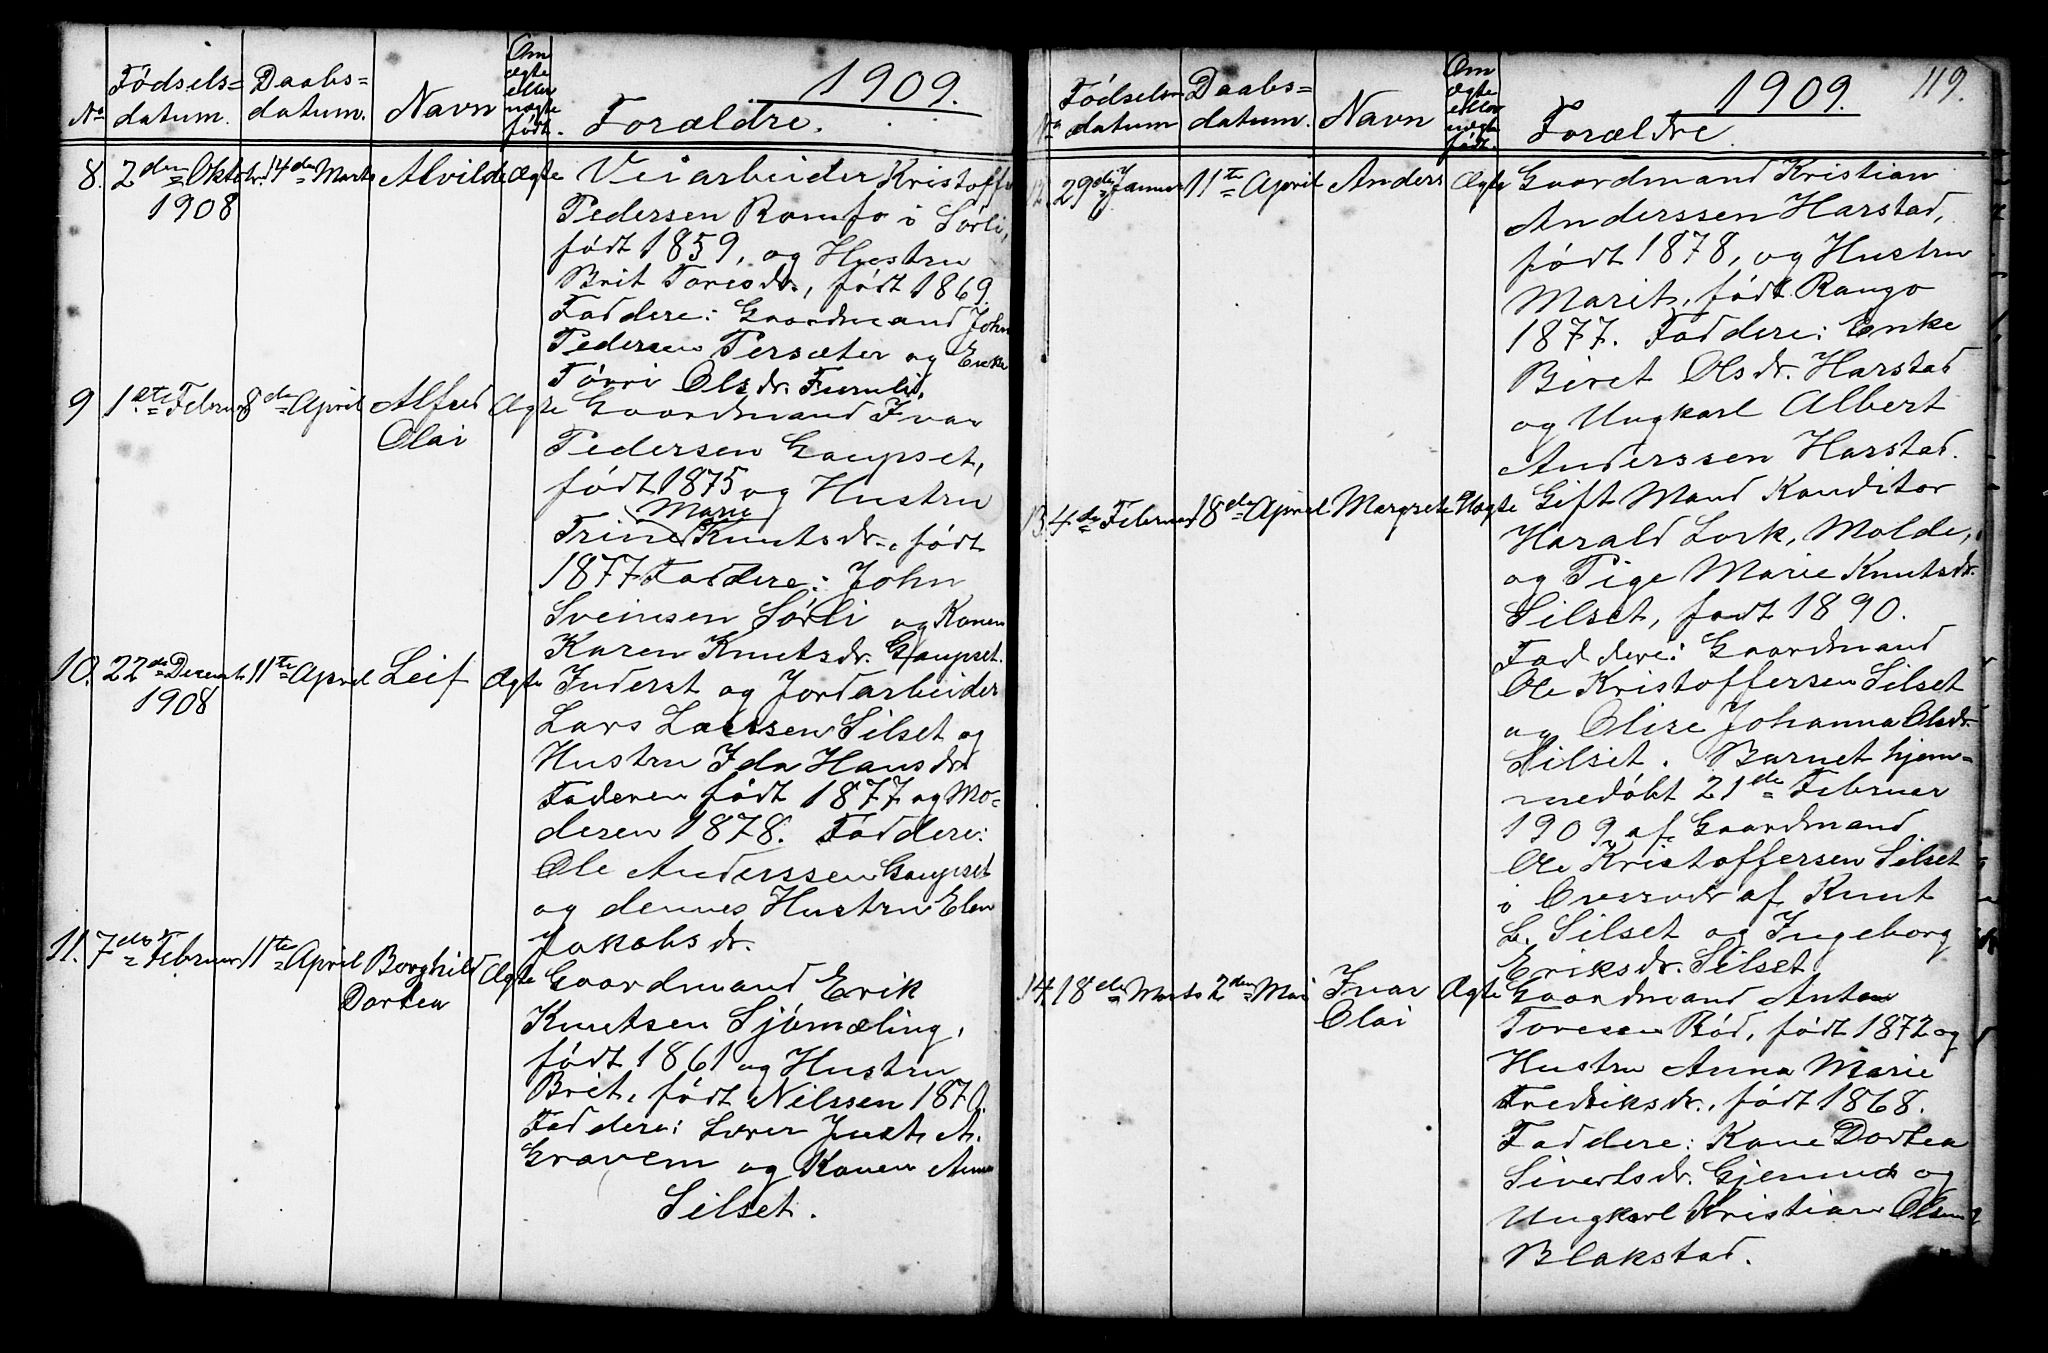 1909.
No Fødsels= datum. Daabs= datum. Navn Om ægte eller uægte født. Forældre.
8. 2den Oktobr. 14de Marts Alvilde Ægte Veiarbeider Kristoffer
1908 Pedersen Romfo i Sørli,
født 1859, og Hustru
Brit Toresdr., født 1869.
Faddere: Gaardmand John
Pedersen Persæter og Enke
Tørri Olsdr. Furuli.
9 1ste Februar 8de April Alfred Ægte Gaardmand Ivar
Olai Pedersen Gaupset,
født 1875 og Hustru
Marie
Trine Knutsdr., født
1877 Faddere: John
Sveinsen Sørli og Konen
Karen Knutsdr. Gaupset.
10. 22de Decemb 11te April Leif Ægte Inderst og Jordarbeider
1908 Lars Larssen Silset og
Hustru Ida Hansdr.
Faderen født 1877 og Mo-
deren 1878. Faddere:
Ole Anderssen Gaupset
og dennes Hustru Elen
Jakobsdr.
11. 7de Februar 11te April Borghild Ægte Gaardmand Erik
Dortea Knutsen Sjømæling,
født 1861 og Hustru
Brit, født Nilssen 1870.
Faddere: Lærer Just A.
Gravem og Konen Anne
Silset.
1909. 119.
No Fødsels= datum Daabs= datum. Navn Om ægte eller uægte født. Forældre.
12. 29de Januar 11te April Anders Ægte Gaardmand Kristian
Anderssen Harstad,
født 1878, og Hustru
Marit, født Rango
1877. Faddere: Enke
Beret Olsdr. Harstad
og Ungkarl Albert
Anderssen Harstad.
13. 4de Februar 18de April Margrete Uægte Gift Mand Konditor
Harald Lork, Molde,
og Pige Marie Knutsdr.
Silset, født 1890.
Faddere: Gaardmand
Ole Kristoffersen Silset
og Olise Johanna Olsdr.
Silset. Barnet hjem=
medøbt 21de Februar
1909 af Gaardmand
Ole Kristoffersen Silset
i Overvær af Knut
L. Silset og Ingeborg
Eriksdr. Silset
14. 18de Marts 2den Mai Ivar Ægte Gaardmand Anton
Olai Toresen Rød, født 1872 og
Hustru Anna Marie
Fredriksdr., født 1868.
Faddere: Kone Dortea
Sivertsdr. Gjemnes og
Ungkarl Kristian Olsen
Blakstad.